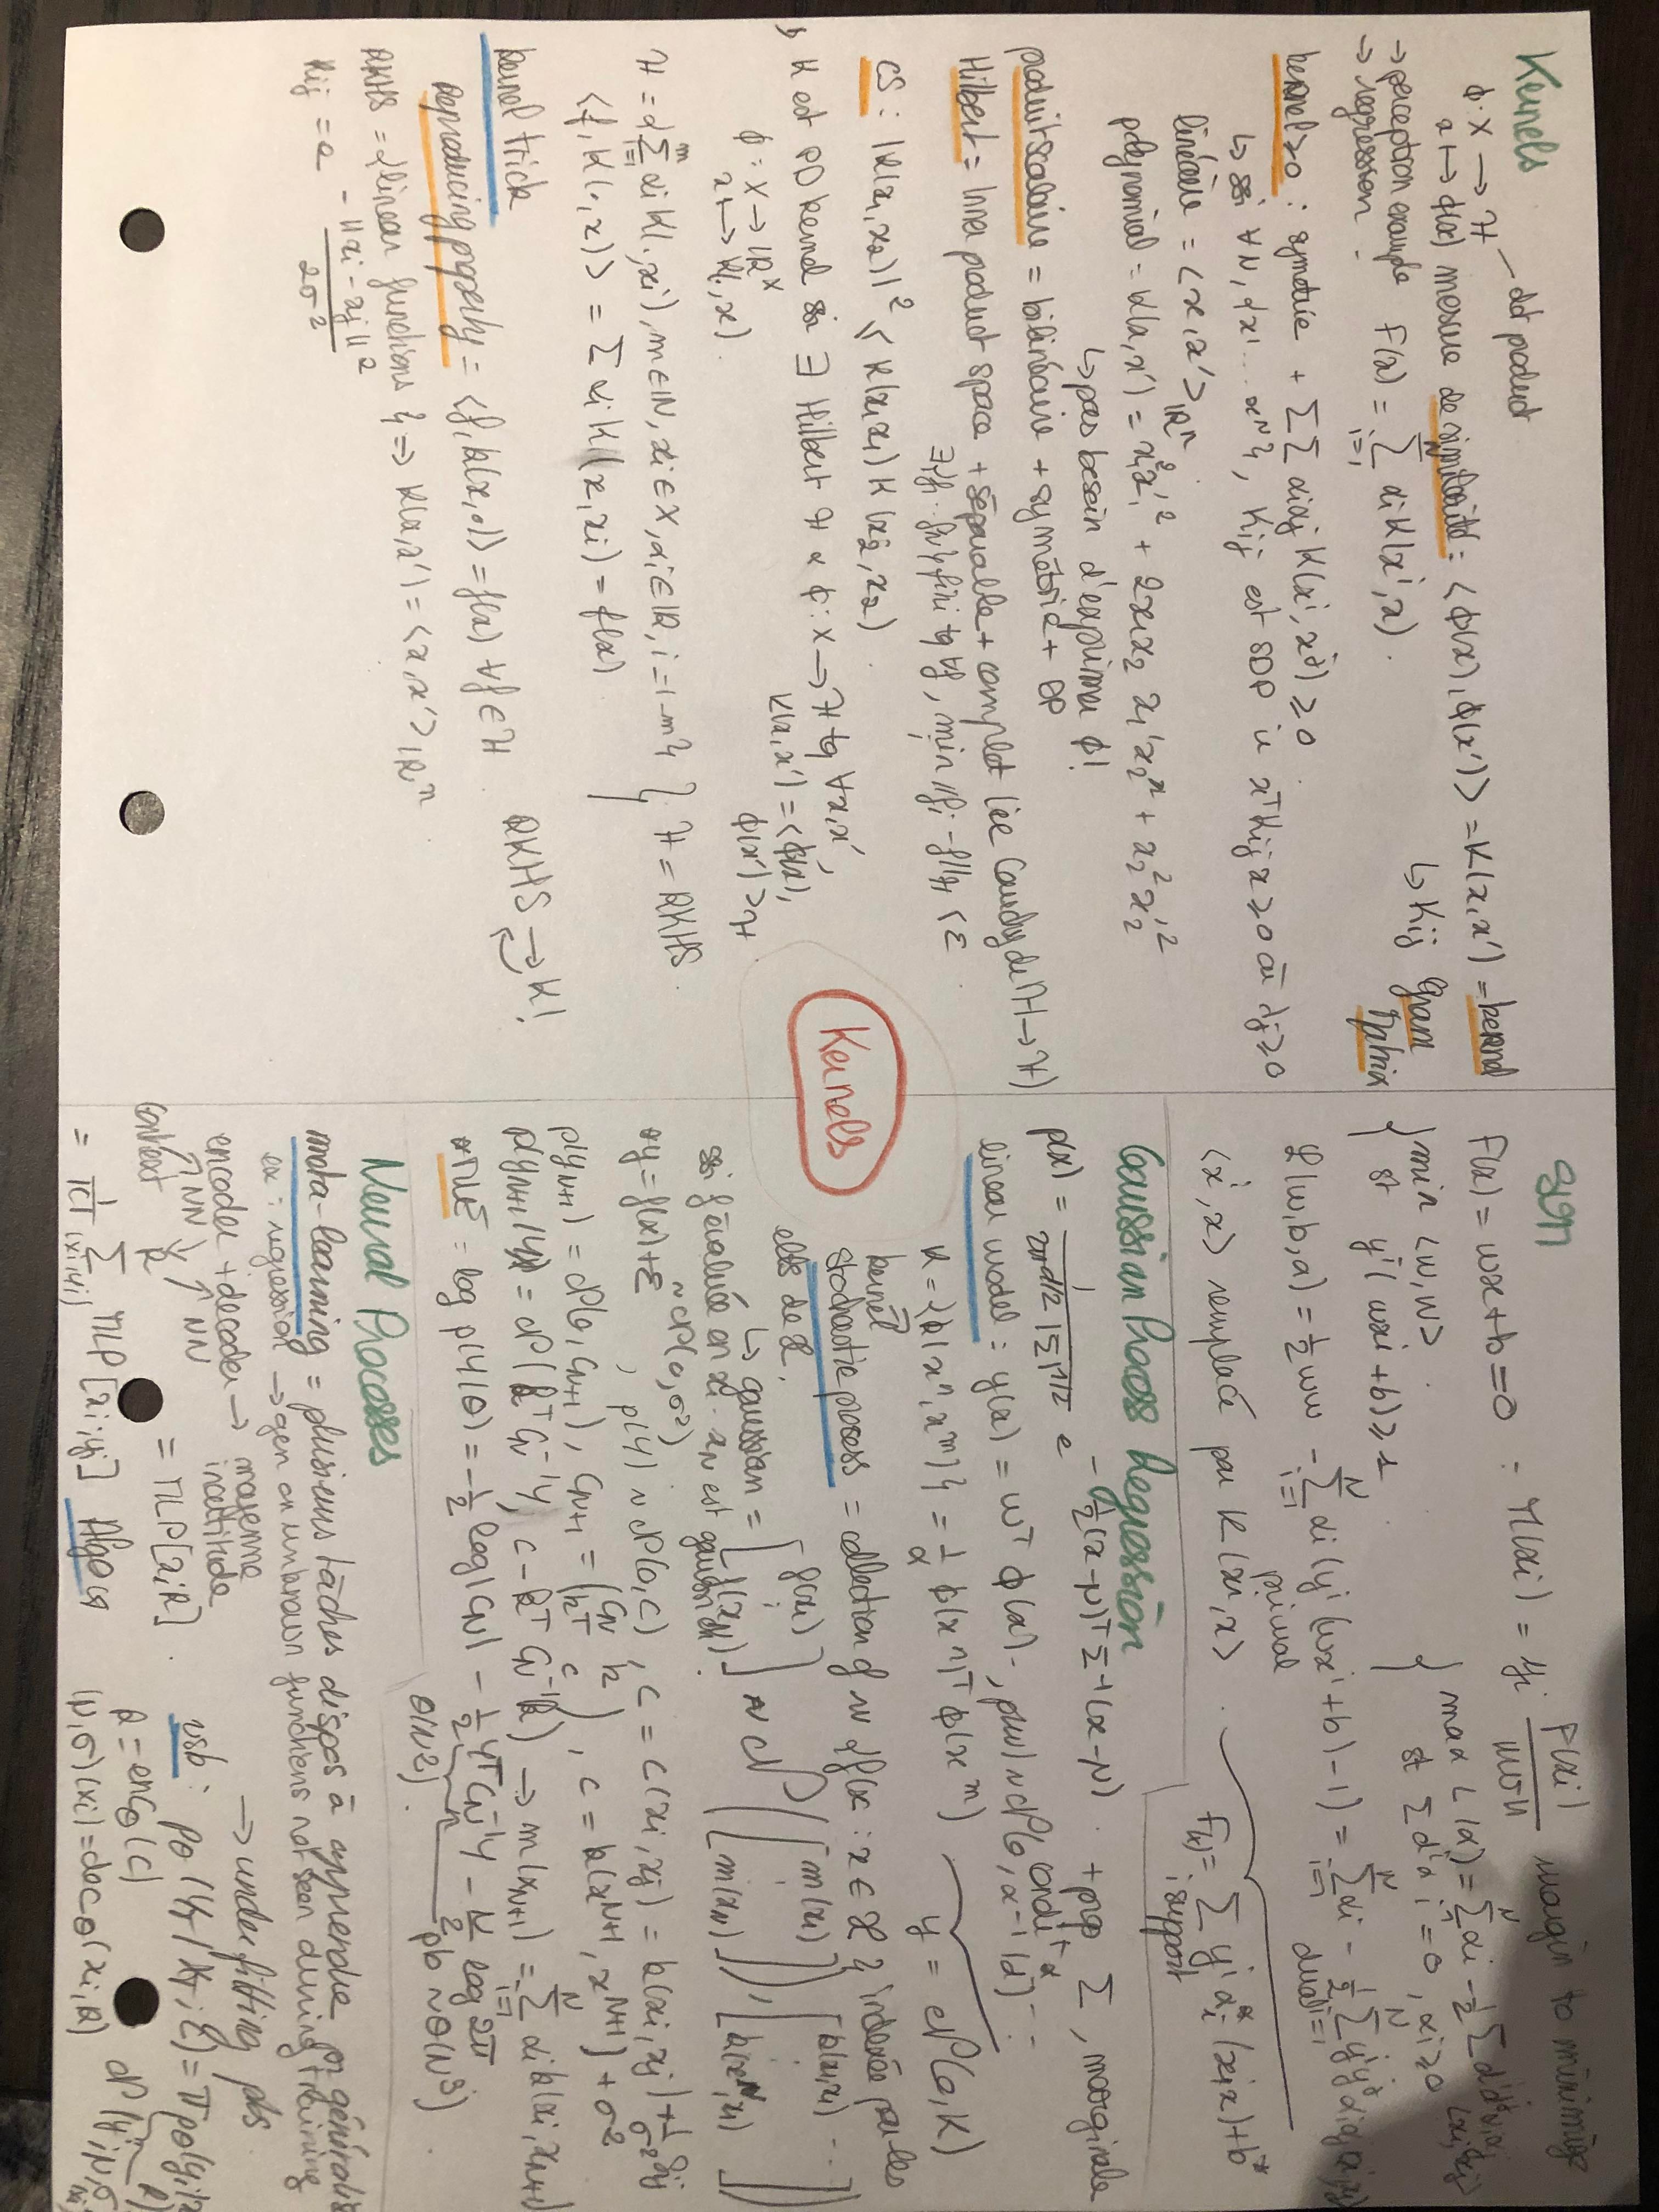 Kernels
ϕ: X → H — dot product
x ↦ ϕ(x) mesure de similarité : <ϕ(x), ϕ(x')> = K(x,x') = kernel
→ perceptron example F(x) = Σ_{i=1}^N αi K(x^i, x). ↳ Kij gram matrix
→ regression.
kernel ≥0 : symétrie + ΣΣ αiαj K(x^i, x^j) ≥ 0
↳ ssi ∀N, {x^1 ... x^N}, Kij est SDP ie x^T Kij x ≥ 0 où λj ≥ 0
linéaire = <x, x'>_{IR^n}
polynomial = K(x,x') = x1² x1'² + 2x1x2 x1'x2' + x2² x2'²
↳ pas besoin d'exprimer ϕ!
produit scalaire = bilinéaire + symétrie + DP
Hilbert = Inner product space + séparable + complet (ie Cauchy de H → H)
∃{fi} fini tq ∀f, min ||fi - f||_H < ε
CS : |K(x1,x2)|² ≤ K(x1,x1) K(x2,x2)
↳ K est PD kernel ssi ∃ Hilbert H & ϕ: X → H tq ∀x,x', K(x,x') = <ϕ(x), ϕ(x')>_H
ϕ: X → IR^X
x ↦ K(., x).
H = {Σ_{i=1}^m αi K(., xi), m ∈ IN, xi ∈ X, αi ∈ IR, i = 1-m} } H = RKHS
<f, K(., x)> = Σ αi K(x, xi) = f(x)
kernel trick RKHS ⇄ K!
reproducing property = <f, K(x, .)> = f(x) ∀f ∈ H
RKHS = {linear functions} => K(x,x') = <x,x'>_{IR^n}
Kij = e^{- ||xi - xj||² / 2σ²}
Kernels
F(x) = wx+b = 0 : M(xi) = yi F(xi) / ||w|| margin to
{ min <w,w>
st y^i(wxi + b) ≥ 1 } { max L(α) = Σ_{i=1}^N αi - ½ Σ
st Σ αi yi = 0, αi ≥ 0
L(w,b,α) = ½ ww - Σ_{i=1}^N αi (y^i (wx^i + b) - 1) = Σ_{i=1}^N αi - ½ Σ
primal dual
<x^i, x> remplacé par K(xi, x)
F(x) = Σ_{i support} y^i αi* (xi x) + b*
Gaussian Process Regression
p(x) = 1 / (2π^{d/2} |Σ|^{1/2}) e^{-½(x-μ)^T Σ^{-1}(x-μ)} + ppp Σ, marginale
linear model : y(x) = w^T ϕ(x), p(w) ~ N(0, α^{-1}Id)
K = {k(x^n, x^m)} = 1/α ϕ(x^n)^T ϕ(x^m) y = N(0, K)
kernel
stochastic process = collection of rv {f(x) : x ∈ X} indexée par les
elts de X.
↳ gaussian = [f(x1) ⋮ f(xN)] ~ N([m(x1) ⋮ m(xN)], [k(x1,x1) ... k(xN,x1) ...])
ssi f évaluée en x1 .. xN est gaussien.
y = f(x) + ε ~ N(0,σ²), p(y) ~ N(0,C), C = C(xi,xj) = k(xi,xj) + 1/σ² δij
p(yN+1) = N(0, CN+1), CN+1 = (CN k / k^T c), c = k(x^{N+1}, x^{N+1}) + σ²
p(yN+1|y) = N(k^T CN^{-1} y, c - k^T CN^{-1} k) → m(xN+1) = Σ_{i=1}^N αi k(xi, xN+1)
MLE : log p(y|θ) = -½ log|CN| - ½ y^T CN^{-1} y - N/2 log 2π
θ(N²) pb ~ θ(N³)
Neural Processes
meta-learning = plusieurs tâches dispos à apprendre pr généraliser
ex: regression → gen on unknown functions not seen during training
encoder + decoder → moyenne incertitude → underfitting pbs
context NN NN
= 1/|C| Σ_{(xi,yi)} MLP[xi; yi] = MLP[xi, R]. nsb : pθ(yT|xT; C) = Π
R = encθ(C)
(μ,σ)(xi) = decθ(xi, R)
Algeu